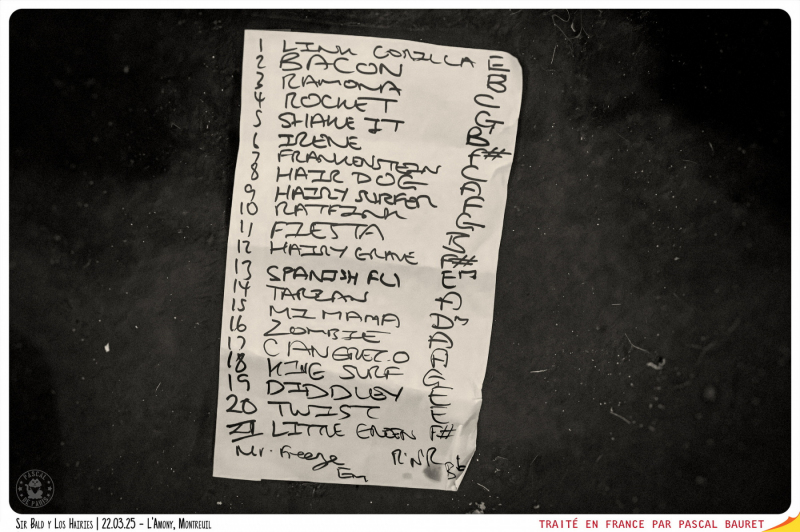 1 LINK GORILLA E
2 BACON B
3 RAMONA C
4 ROCKET G
5 SHAKE IT B
6 IRENE F#
7 FRANKENSTEIN C
8 HAIR DOG A
9 HAIRY SURFER F
10 RATFINK G
11 FIESTA
12 HAIRY GRAVE
13 SPANISH FLY E
14 TARZAN G
15 MI MAMA A
16 ZOMBIE A
17 CANGREJO
18 KING SURF G
19 DIDDLEY E
20 TWIST E
21 LITTLE F#
Mr. Freeze R'N'R
Em Bb
PASCAL
DE PARIS
SIR BALD Y LOS HAIRIES | 22.03.25 - L'AMONY, MONTREUIL
TRAITÉ EN FRANCE PAR PASCAL BAURET